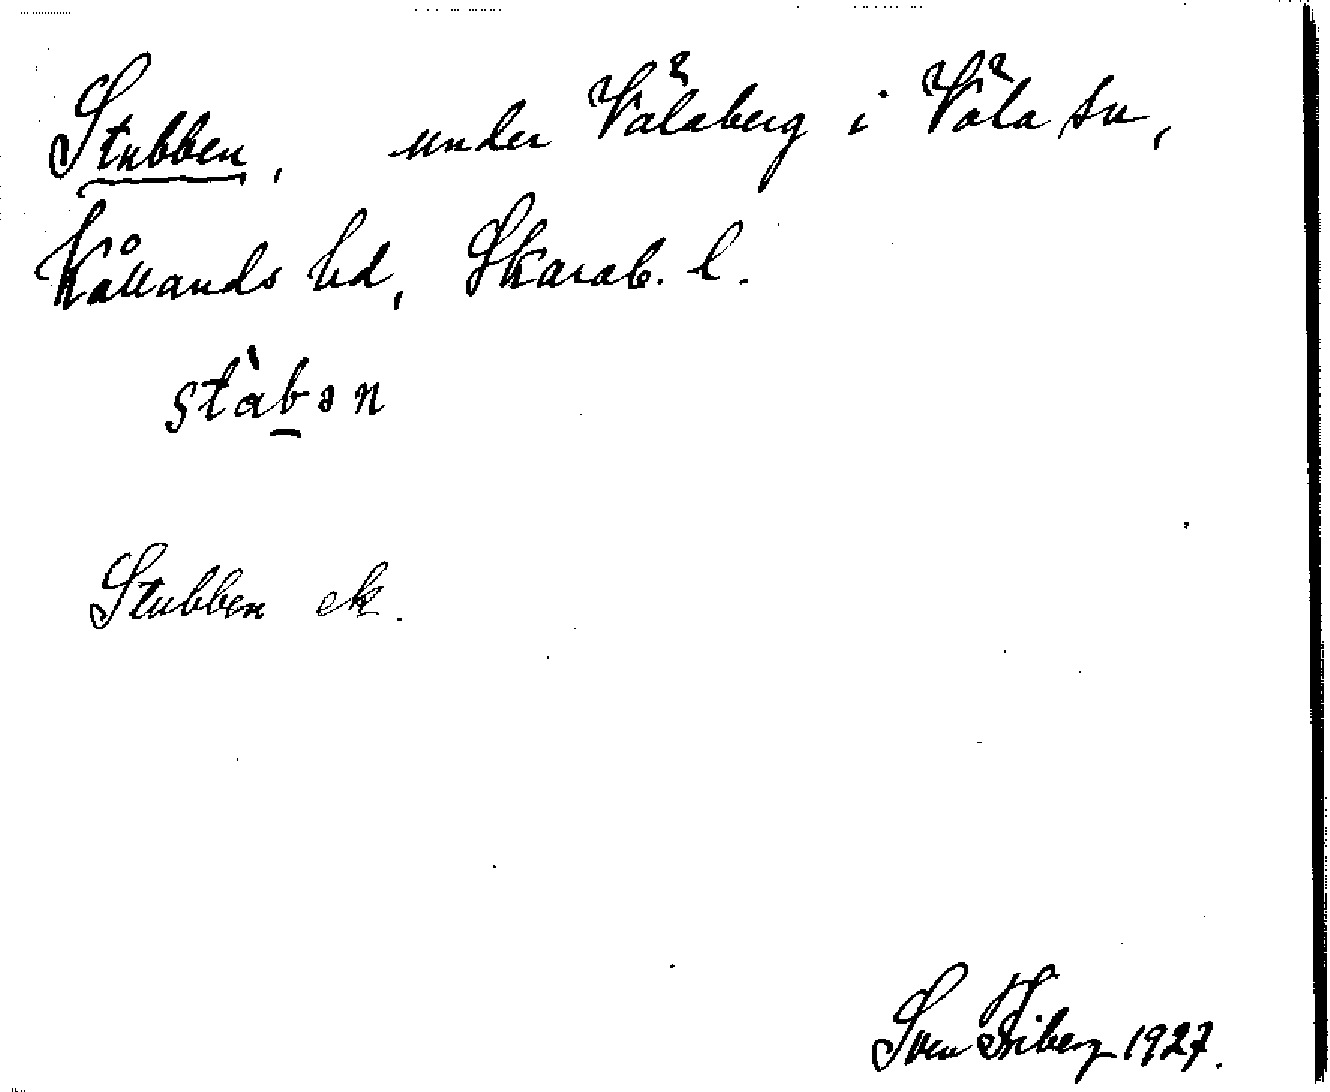 Stubben, under Välaberg i Väla sn,
Kållands hd, Skarab. l.
stàbən
Stubben ek.
Sven Friberg 1927.